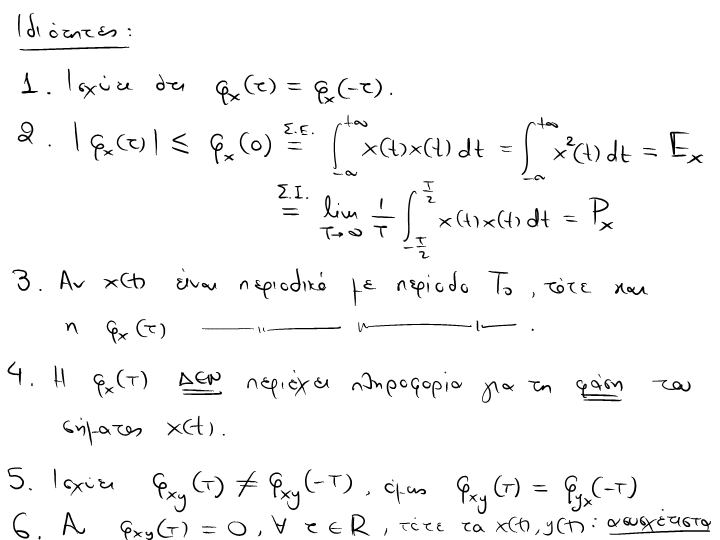 Ιδιότητες:
1. Ισχύει ότι φₓ(τ) = φₓ(-τ).
2. |φₓ(τ)| ≤ φₓ(0) =^{Σ.Ε.} ∫_{-∞}^{+∞} x(t)x(t) dt = ∫_{-∞}^{+∞} x²(t) dt = Eₓ
=^{Σ.Ι.} lim_{T→∞} 1/T ∫_{-T/2}^{T/2} x(t)x(t) dt = Pₓ
3. Αν x(t) είναι περιοδικό με περίοδο T₀, τότε και
η φₓ(τ) —— " —— " —— " ——.
4. Η φₓ(τ) ΔΕΝ περιέχει πληροφορία για τη φάση του
σήματος x(t).
5. Ισχύει φ_{xy}(τ) ≠ φ_{xy}(-τ), όμως φ_{xy}(τ) = φ_{yx}(-τ)
6. Α φ_{xy}(τ) = 0, ∀ τ ∈ R, τότε τα x(t), y(t): ασυσχέτιστα